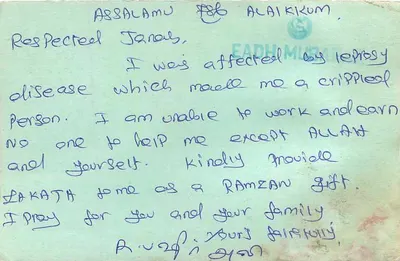 ASSALAMU ALAIKKUM.
Respected Janab,
EADH MU
I was affected by leprosy
disease which made me a crippled
Person. I am unable to work and earn
No one to help me except ALLAH
and yourself. Kindly Provide
ZAKATA to me as a RAMZAN gift.
I pray for you and your family
Yours faithfully,
அலி